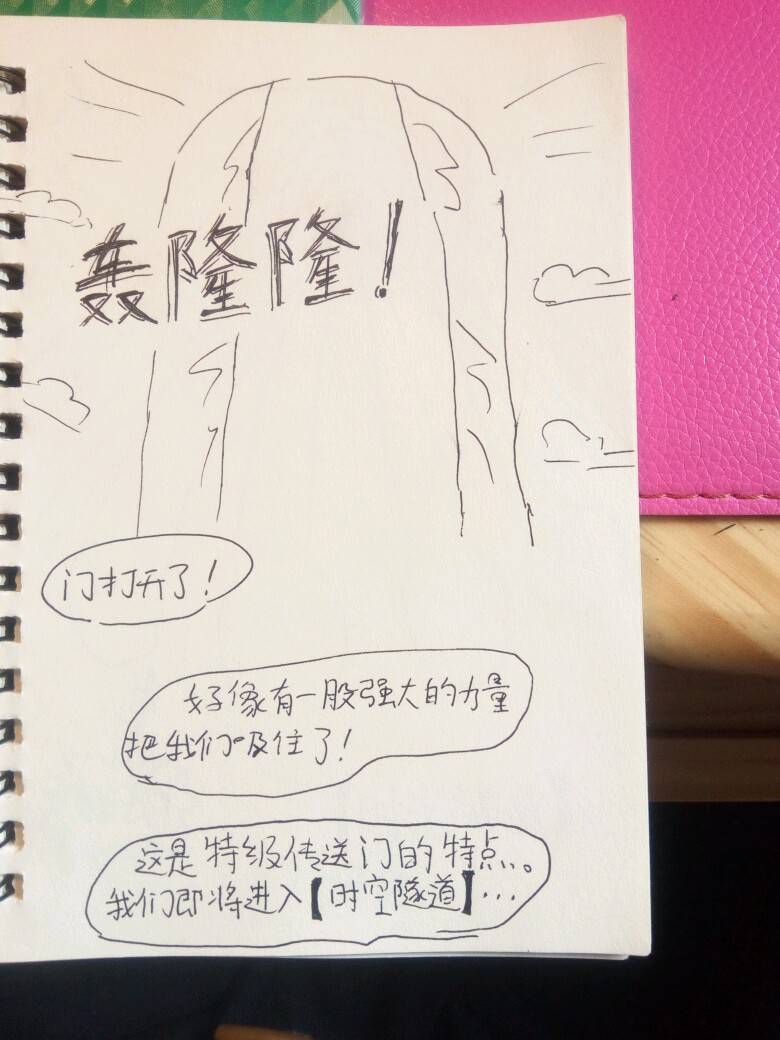 轰隆隆!
门打开了!
好像有一股强大的力量
把我们吸住了!
这是特级传送门的特点。
我们即将进入【时空隧道】...